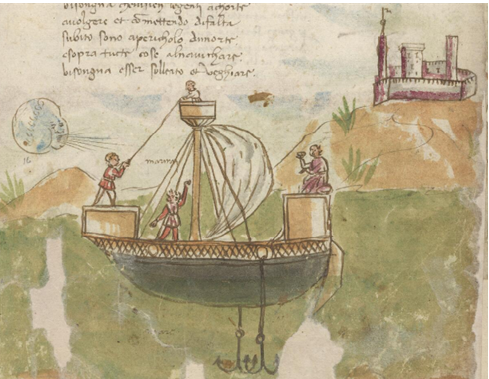 bisongna genti achorte
auolgere et comettendo difalta
subito sono apericholo dimorte
sopra tutte cose alnauichare
bisongna esser sollecito et veghiare